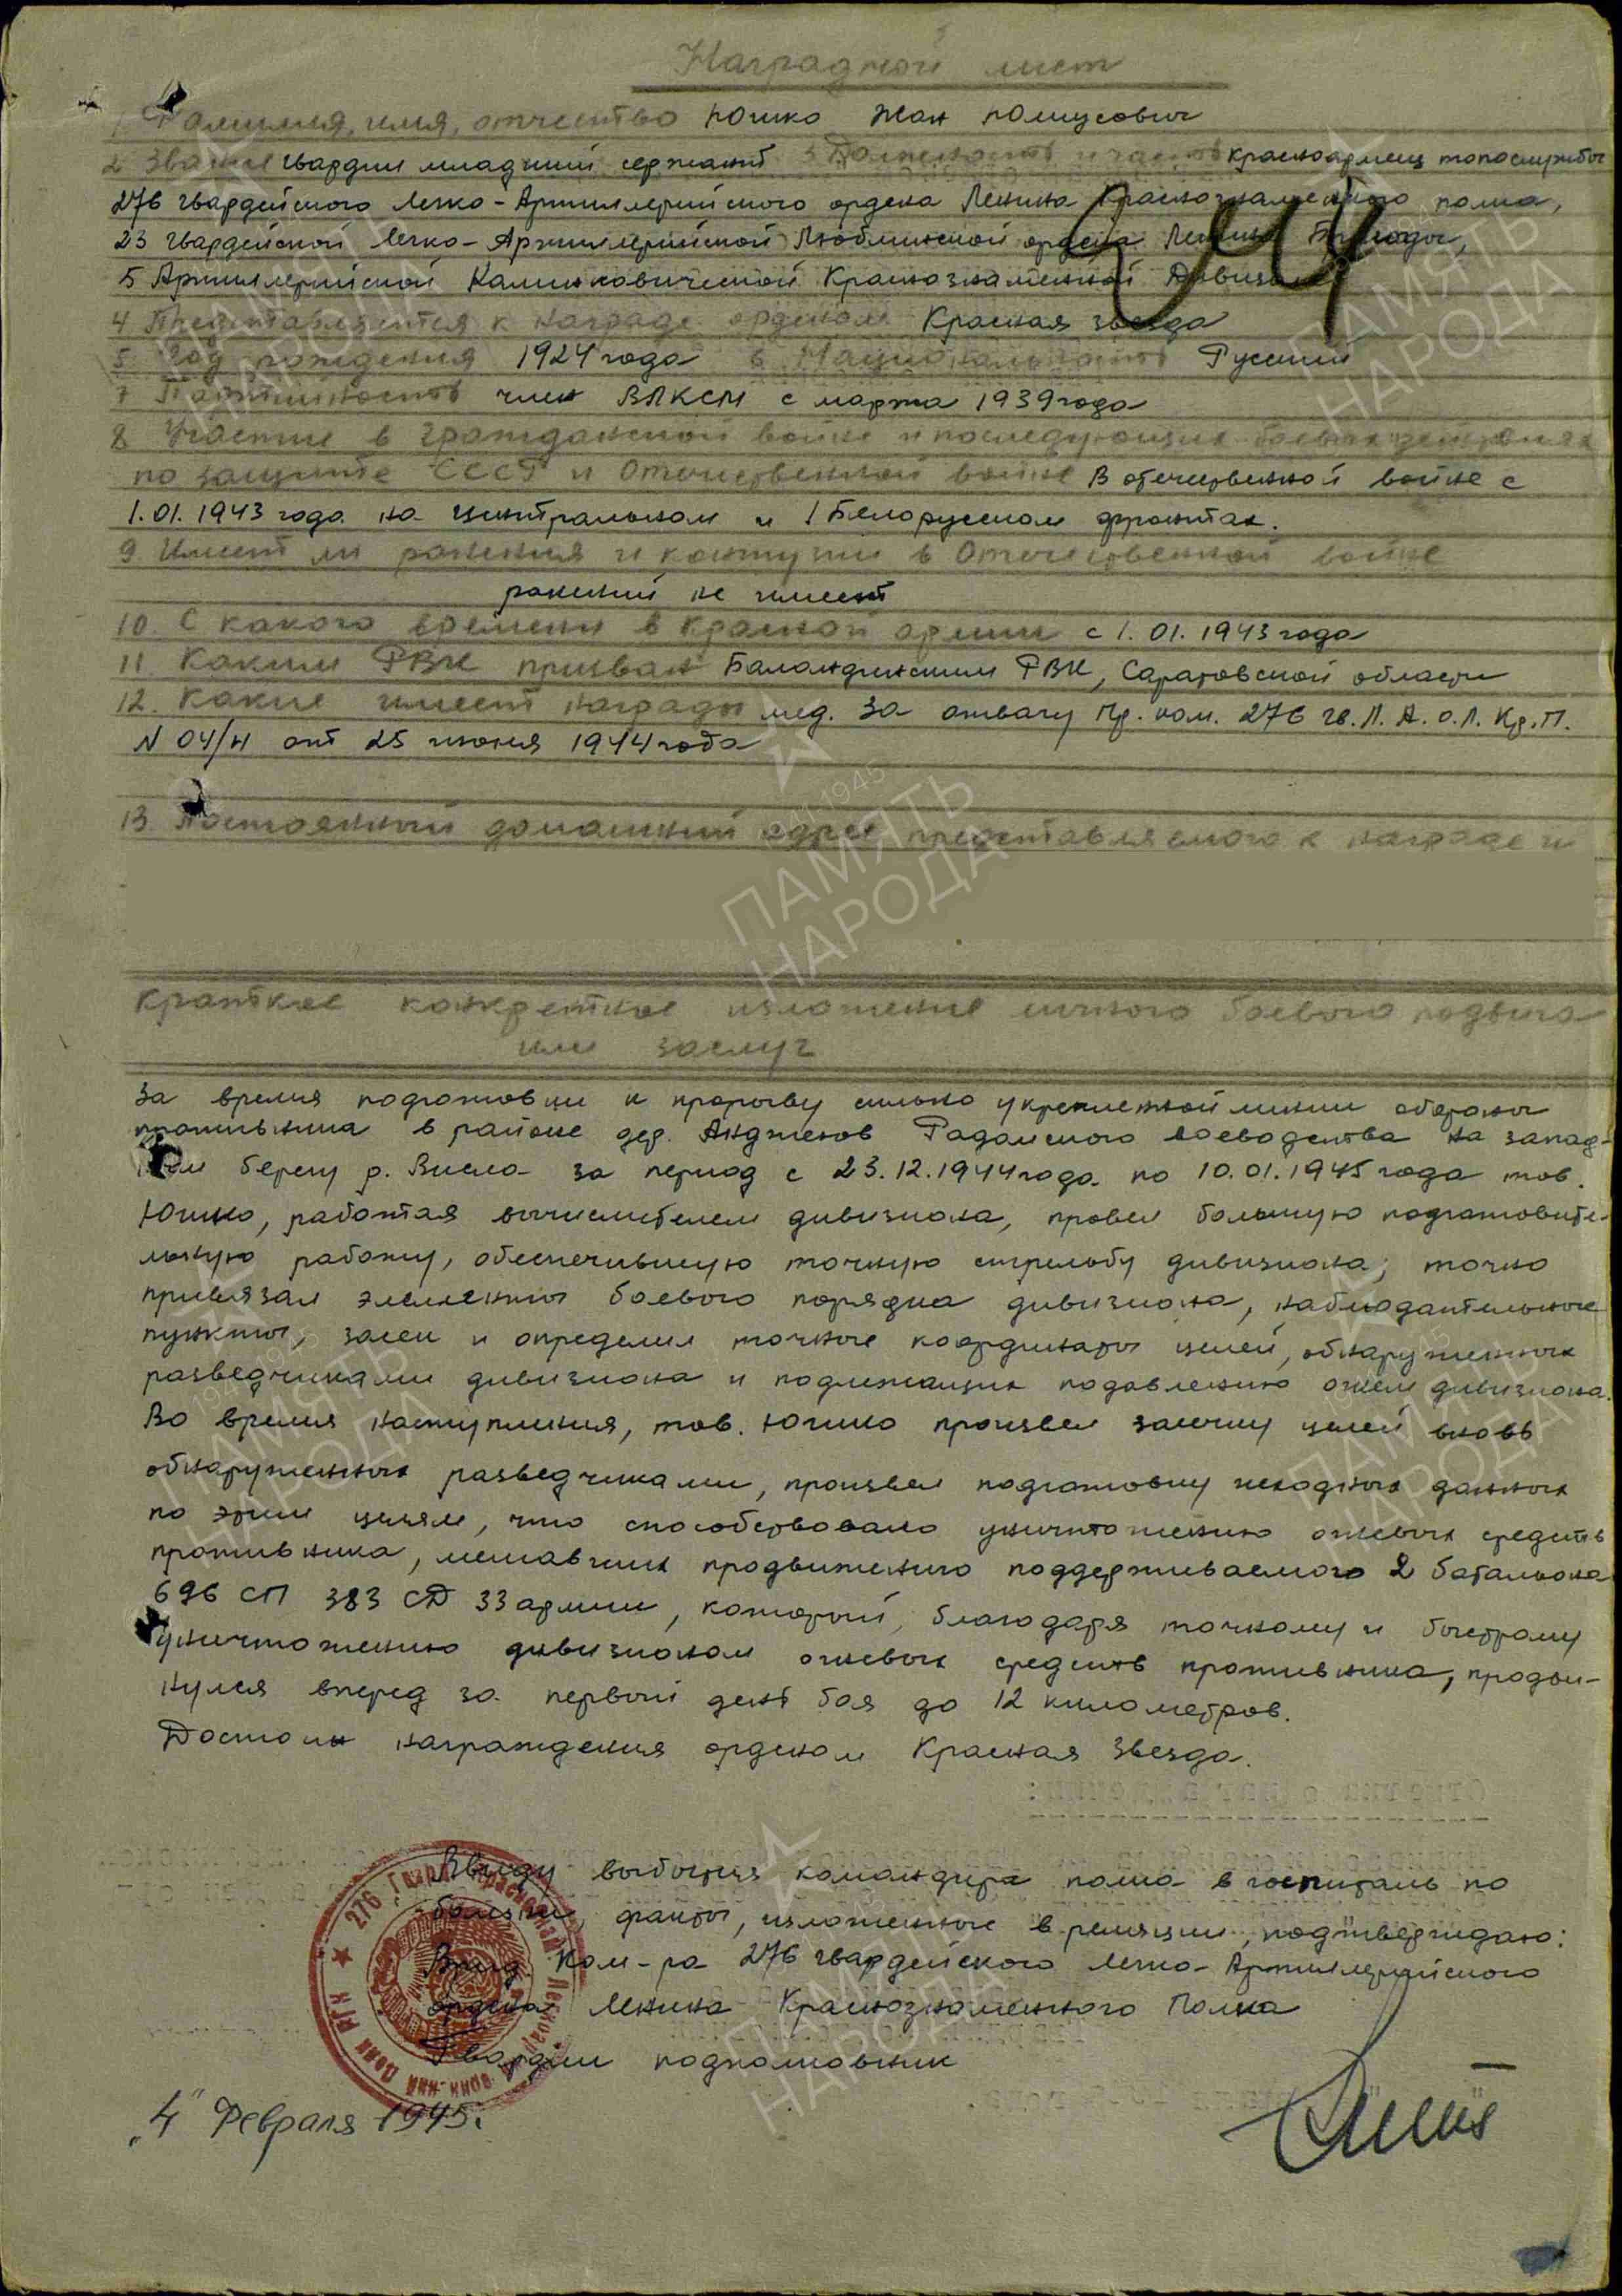 Наградной лист
1 Фамилия, имя, отчество Юшко Жан Юлиусович
2 Звание гвардии младший сержант 3 Должность и часть красноармеец топослужбы
276 гвардейского Легко-Артиллерийского ордена Ленина Краснознаменного полка,
23 гвардейской Легко-Артиллерийской Люблинской ордена Ленина Бригады,
5 Артиллерийской Калинковической Краснознаменной Дивизии
4 Представляется к награде орденом Красная звезда
5 Год рождения 1924 года 6 Национальность Русский
7 Партийность член ВЛКСМ с марта 1939 года
8 Участие в гражданской войне и последующих боевых действиях
по защите СССР и Отечественной войне В отечественной войне с
1.01.1943 года на центральном и 1 Белорусском фронтах.
9. Имеет ли ранения и контузии в Отечественной войне
ранений не имеет
10. С какого времени в Красной армии с 1.01.1943 года
11 Каким РВК призван Баландинским РВК, Саратовской области
12. Какие имеет награды мед. За отвагу Пр. ком. 276 гв. Л. А. о.Л. Кр.П.
N 04/н от 25 июня 1944 года
13. Постоянный домашний адрес представляемого к награде и
Краткое конкретное изложение личного боевого подвига
или заслуг
За время подготовки к прорыву сильно укрепленной линии обороны
противника в районе дер. Анджеюв Радомского воеводства на запад-
ном берегу р. Висла за период с 23.12.1944 года по 10.01.1945 года тов.
Юшко, работая вычислителем дивизиона, провел большую подготовите-
льную работу, обеспечившую точную стрельбу дивизиона; точно
привязал элементы боевого порядка дивизиона, наблюдательные
пункты, засек и определил точные координаты целей, обнаруженных
разведчиками дивизиона и подлежащих подавлению огнем дивизиона.
Во время наступления, тов. Юшко произвел засечку целей вновь
обнаруженных разведчиками, произвел подготовку исходных данных
по этим целям, что способствовало уничтожению огневых средств
противника, мешавших продвижению поддерживаемого 2 батальона
696 СП 383 СД 33 армии, который, благодаря точному и быстрому
уничтожению дивизионом огневых средств противника, продви-
нулся вперед за первый день боя до 12 километров.
Достоин награждения орденом Красная Звезда.
Ввиду выбытия командира полка в госпиталь по
болезни, факты, изложенные в реляции, подтверждаю:
Врид Ком-ра 276 гвардейского Легко-Артиллерийского
ордена Ленина Краснознаменного Полка
Гвардии подполковник
"4" Февраля 1945г.
ПАМЯТЬ
НАРОДА